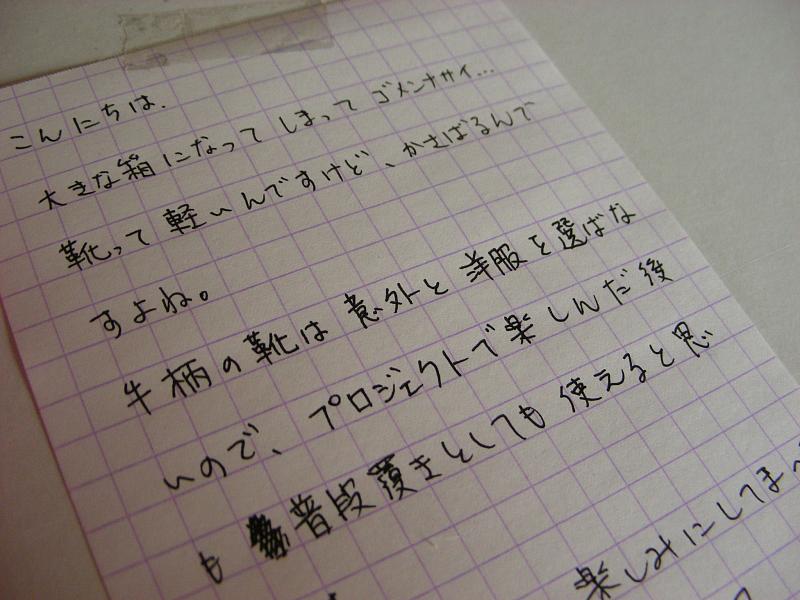 こんにちは.
大きな箱になってしまって ゴメンナサイ...
靴って軽いんですけど、かさばるんで
すよね。
牛柄の靴は意外と洋服を選ばな
いので、プロジェクトで楽しんだ後
も 普段覆きとしても使えると思
楽しみにしてまっ